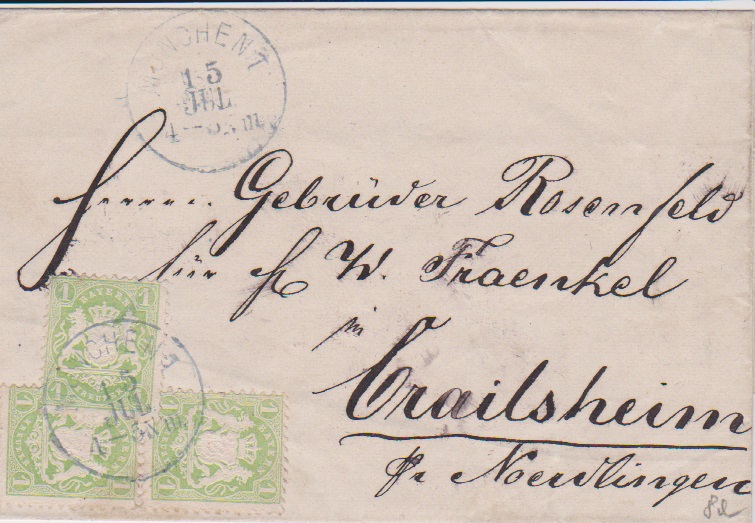 MÜNCHEN 1
15
JUL
4-5 Nm
Herren Gebrüder Rosenfeld
für H W. Fraenkel
in
Crailsheim
pr Noerdlingen
1 BAYERN 1
1
CHEN 1
15
JUL
4-5 Nm
1 1
1 1
1 1